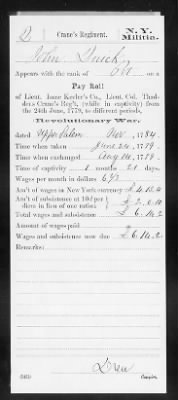 2 | Crane's Regiment. | N.Y. Militia.
John Quick
Appears with the rank of Pvt on a
Pay Roll
of Lieut. Isaac Keeler's Co., Lieut. Col. Thad-
deus Crane's Reg't, (while in captivity) from
the 24th June, 1779, to different periods,
Revolutionary War,
dated Upper Salem Nov., 1784.
Time when taken June 24, 1779.
Time when exchanged Aug 14, 1779.
Time of captivity 1 months 21 days
Wages per month in dollars 6 2/3
Am't of wages in New York currency £ 4.
Am't of subsistence at 10d per
diem in lieu of one ration £ 2.
Total wages and subsistence £ 6.14.2
Amount of wages paid
Wages and subsistence now due £ 6.14.2
Remarks:
Copyist.